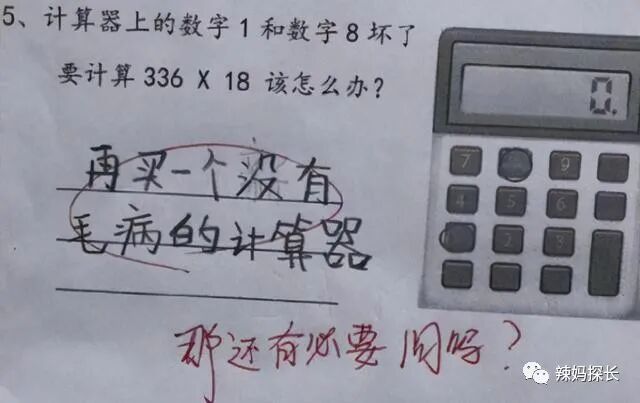 5、计算器上的数字1和数字8坏了
要计算336 X 18该怎么办?
0.
再买一个没有
毛病的计算器
7 9
4 5 6
2 3
那还有必要问吗?
辣妈探长